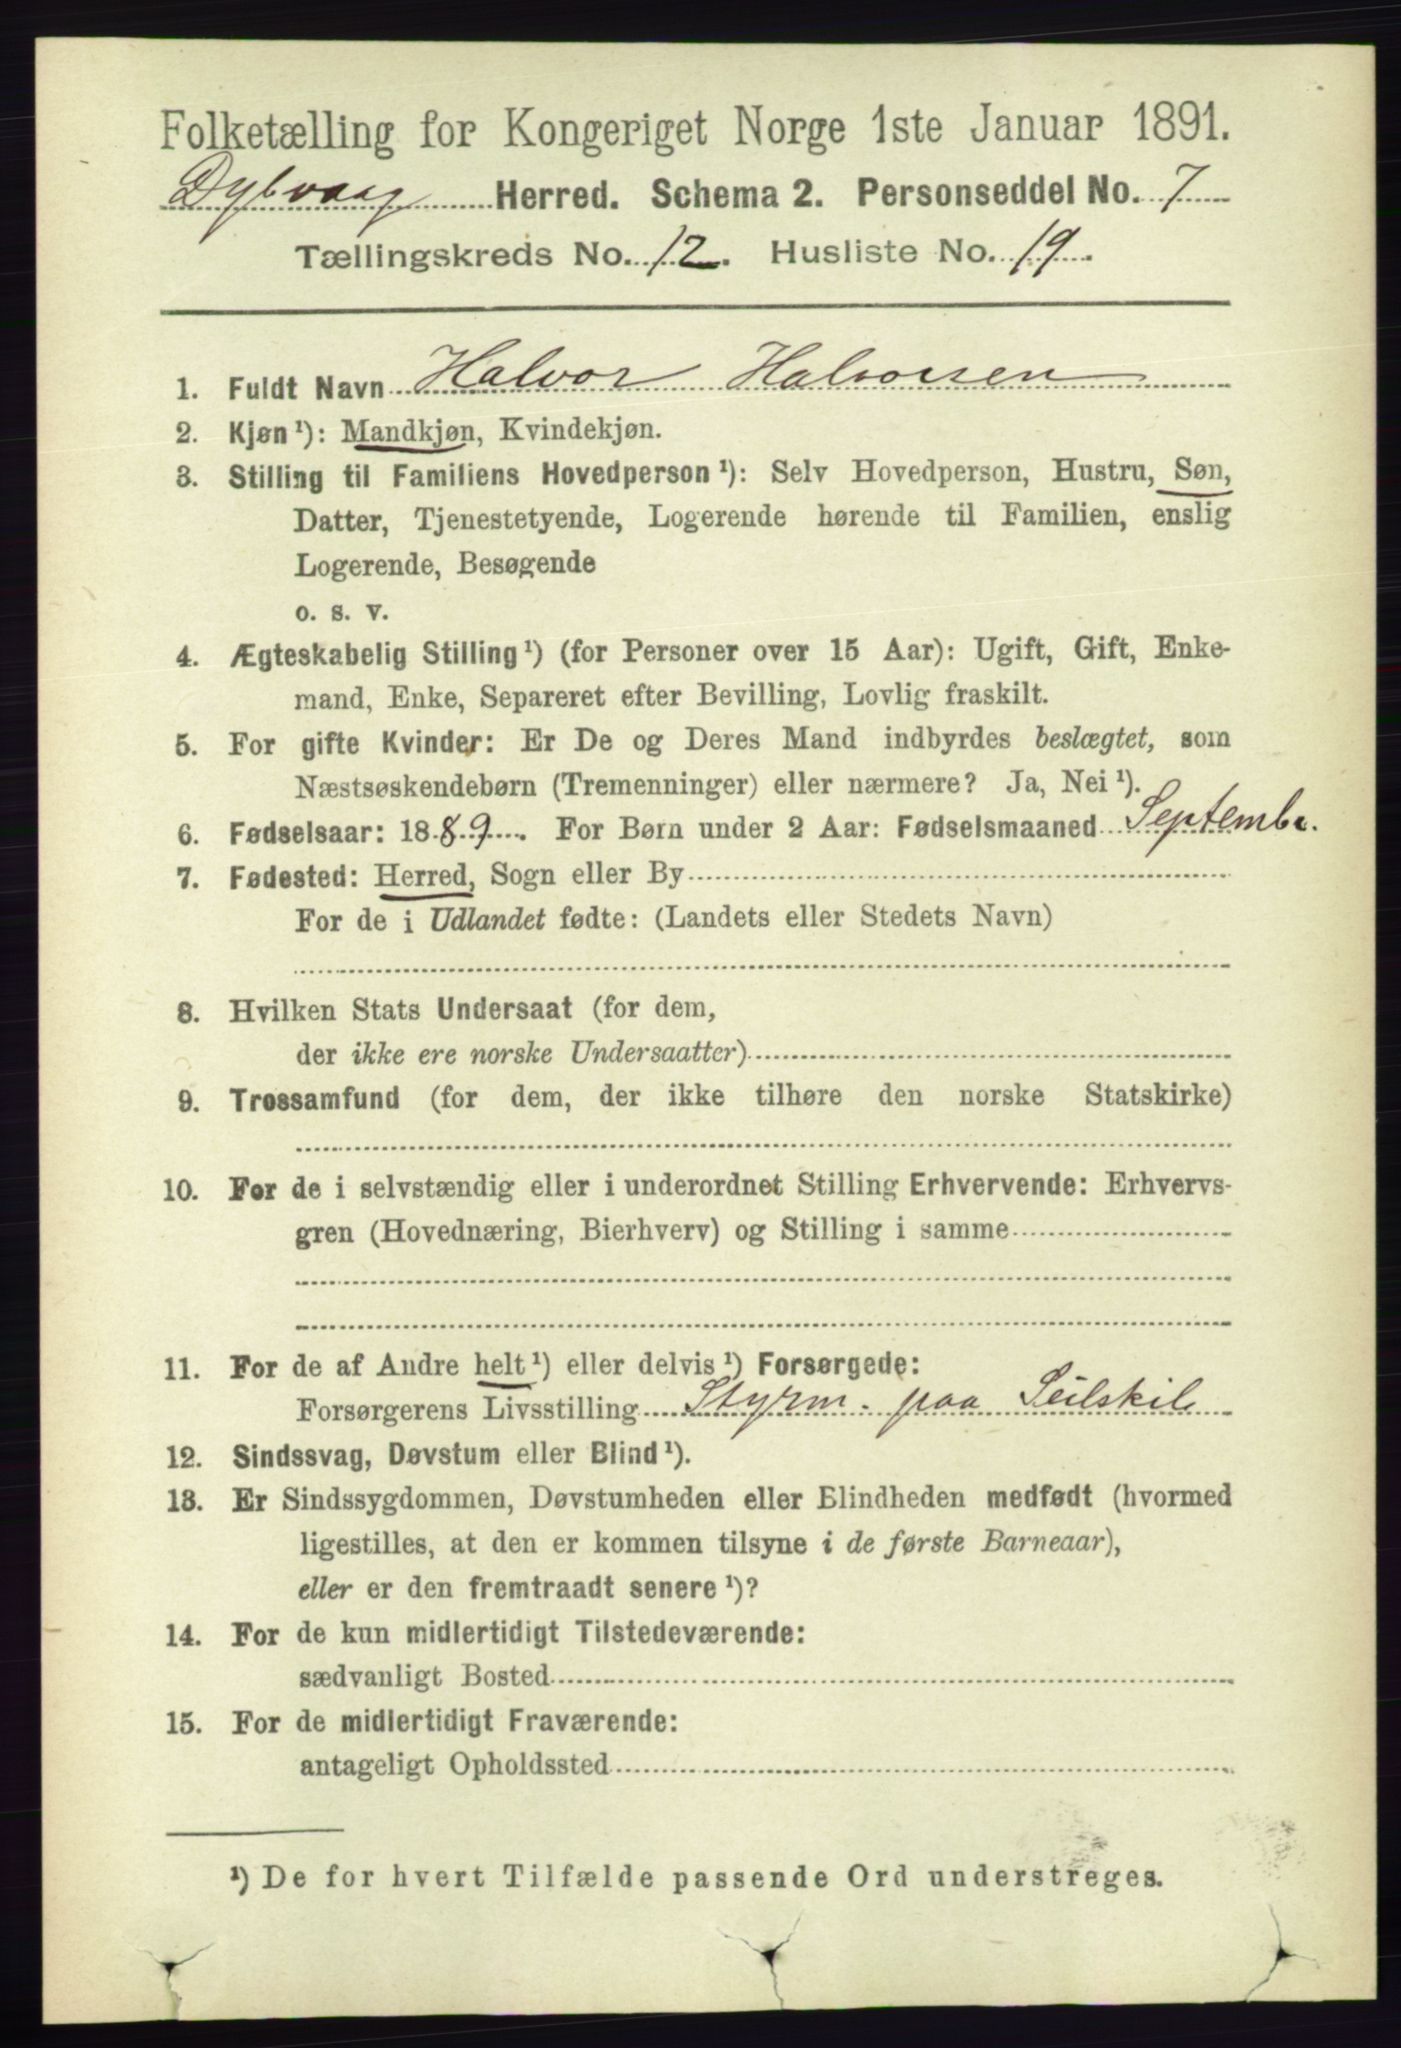 Folketælling for Kongeriget Norge 1ste Januar 1891.
Dybvaag Herred. Schema 2. Personseddel No. 7
Tællingskreds No. 12. Husliste No. 19.
1. Fuldt Navn Halvor Halvorsen
2. Kjøn¹): Mandkjøn, Kvindekjøn.
3. Stilling til Familiens Hovedperson¹): Selv Hovedperson, Hustru, Søn,
Datter, Tjenestetyende, Logerende hørende til Familien, enslig
Logerende, Besøgende
o. s. v.
4. Ægteskabelig Stilling¹) (for Personer over 15 Aar): Ugift, Gift, Enke-
mand, Enke, Separeret efter Bevilling, Lovlig fraskilt.
5. For gifte Kvinder: Er De og Deres Mand indbyrdes beslægtet, som
Næstsøskendebørn (Tremenninger) eller nærmere? Ja, Nei¹).
6. Fødselsaar: 1889. For Børn under 2 Aar: Fødselsmaaned Septembr.
7. Fødested: Herred, Sogn eller By
For de i Udlandet fødte: (Landets eller Stedets Navn)
8. Hvilken Stats Undersaat (for dem,
der ikke ere norske Undersaatter)
9. Trossamfund (for dem, der ikke tilhøre den norske Statskirke)
10. For de i selvstændig eller i underordnet Stilling Erhvervende: Erhvervs-
gren (Hovednæring, Bierhverv) og Stilling i samme
11. For de af Andre helt¹) eller delvis¹) Forsørgede:
Forsørgerens Livsstilling Styrm. paa Seilskib
12. Sindssvag, Døvstum eller Blind¹).
13. Er Sindssygdommen, Døvstumheden eller Blindheden medfødt (hvormed
ligestilles, at den er kommen tilsyne i de første Barneaar),
eller er den fremtraadt senere¹)?
14. For de kun midlertidigt Tilstedeværende:
sædvanligt Bosted
15. For de midlertidigt Fraværende:
antageligt Opholdssted
¹) De for hvert Tilfælde passende Ord understreges.